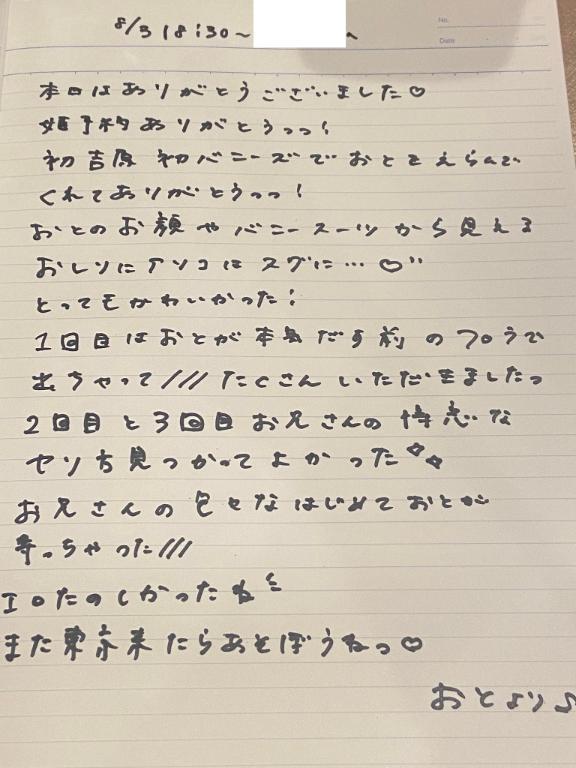 8/3 18:30～
No.
Date
本日はありがとうございました♡
姫予約ありがとうっっ！
初吉原 初バニーズでおとをえらんで
くれてありがとうっっ！
おとのお顔やバニースーツから見える
おしりにアソコはスグに…♡
とってもかわいかった！
1回目はおとが本気だす前のフロうで
出ちゃって///たくさんいただきましたっ
2回目と3回目お兄さんの得意な
ヤリ方見つかってよかった
お兄さんの色々なはじめておとが
奪っちゃった///
エロたのしかったね
また東京来たらあそぼうねっ♡
おとより♪